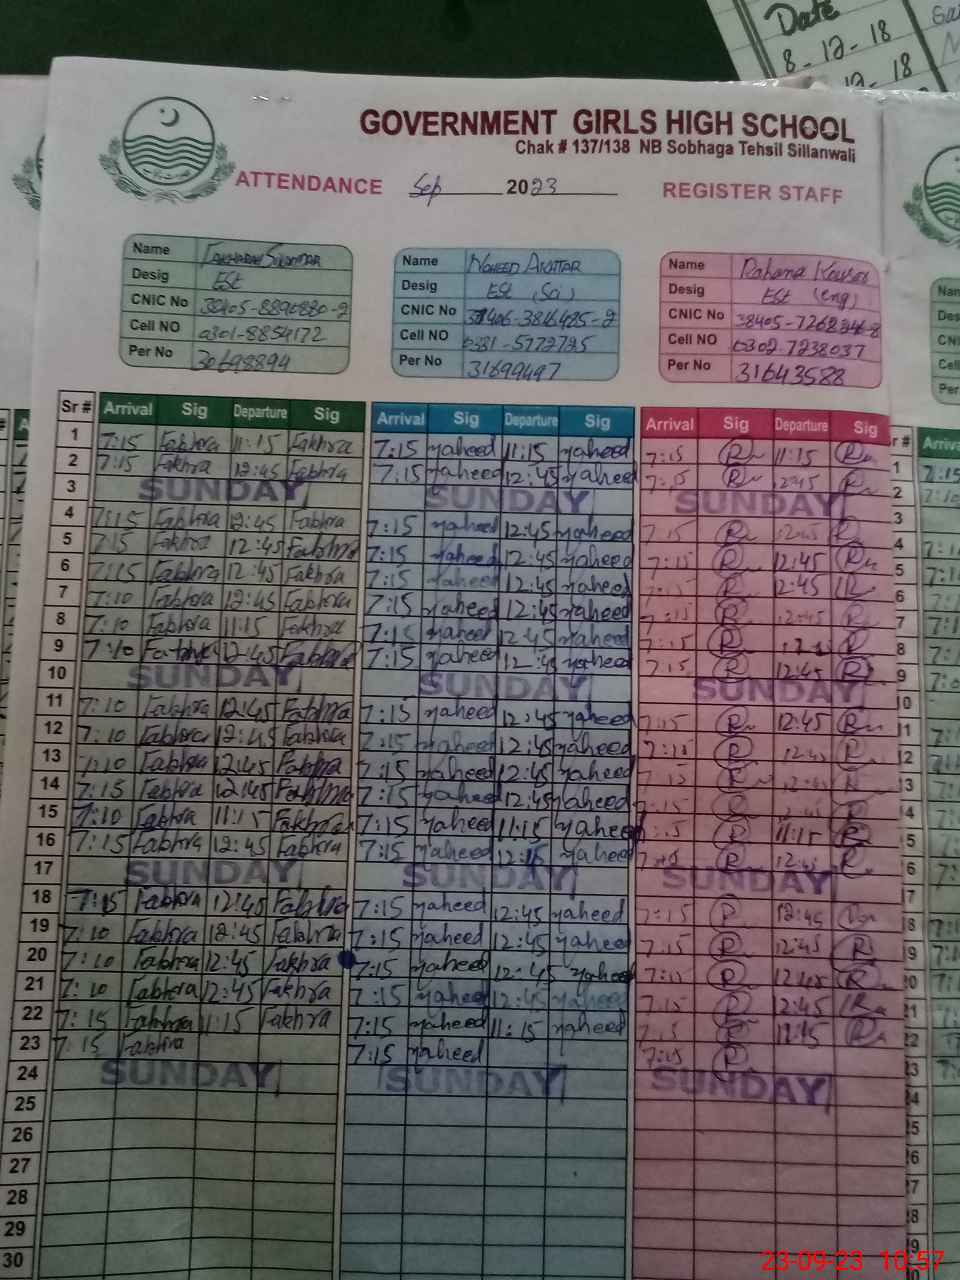 Date
8-12-18
12-18
GOVERNMENT GIRLS HIGH SCHOOL
Chak # 137/138 NB Sobhaga Tehsil Sillanwali
ATTENDANCE Sep 2023 REGISTER STAFF
Name
Desig ESt
CNIC No
Cell NO 0301-8854172
Per No 30698894
Name NAHEED AKHTAR
Desig ESt (Sci)
CNIC No
Cell NO
Per No 31699497
Name Rahana Kausar
Desig ESt (eng)
CNIC No
Cell NO 0302-7238037
Per No 31643588
Sr # Arrival Sig Departure Sig Arrival Sig Departure Sig Arrival Sig Departure Sig
1 7:15 Fakhra 11:15 Fakhra 7:15 naheed 11:15 naheed 7:15 R 11:15 R
2 7:15 Fakhra 12:45 Fakhra 7:15 naheed 12:45 naheed 7:15 R 12:45 R
3 SUNDAY SUNDAY SUNDAY
4 7:15 Fakhra 12:45 Fakhra 7:15 naheed 12:45 naheed 7:15 R 12:45 R
5 7:15 Fakhra 12:45 Fakhra 7:15 naheed 12:45 naheed 7:15 R 12:45 R
6 7:15 Fakhra 12:45 Fakhra 7:15 naheed 12:45 naheed 7:15 R 12:45 R
7 7:10 Fakhra 12:45 Fakhra 7:15 naheed 12:45 naheed 7:15 R 12:45 R
8 7:10 Fakhra 11:15 Fakhra 7:15 naheed 12:45 naheed 7:15 R R
9 7:10 Fakhra 12:45 Fakhra 7:15 naheed 12:45 naheed 7:15 R 12:45 R
10 SUNDAY SUNDAY SUNDAY
11 7:10 Fakhra 12:45 Fakhra 7:15 naheed 12:45 naheed 7:15 R 12:45 R
12 7:10 Fakhra 12:45 Fakhra 7:15 naheed 12:45 naheed 7:15 R 12:45 R
13 7:10 Fakhra 12:45 Fakhra 7:15 naheed 12:45 naheed 7:15 R 12:45 R
14 7:15 Fakhra 12:45 Fakhra 7:15 naheed 12:45 naheed 7:15 R 12:45 R
15 7:10 Fakhra 11:15 Fakhra 7:15 naheed 11:15 naheed 7:15 R 11:15 R
16 7:15 Fakhra 12:45 Fakhra 7:15 naheed naheed R 12:45 R
17 SUNDAY SUNDAY SUNDAY
18 7:15 Fakhra 12:45 Fakhra 7:15 naheed 12:45 naheed 7:15 R 12:45 R
19 7:10 Fakhra 12:45 Fakhra 7:15 naheed 12:45 naheed 7:15 R 12:45 R
20 7:10 Fakhra 12:45 Fakhra 7:15 naheed 12:45 naheed 7:15 R 12:45 R
21 7:10 Fakhra 12:45 Fakhra 7:15 naheed 12:45 naheed 7:15 R 12:45 R
22 7:15 Fakhra 11:15 Fakhra 7:15 naheed 11:15 naheed 7:15 R R
23 7:15 Fakhra 7:15 naheed 7:15 R
24 SUNDAY SUNDAY SUNDAY
25
26
27
28
29
30
23-09-23 10:57